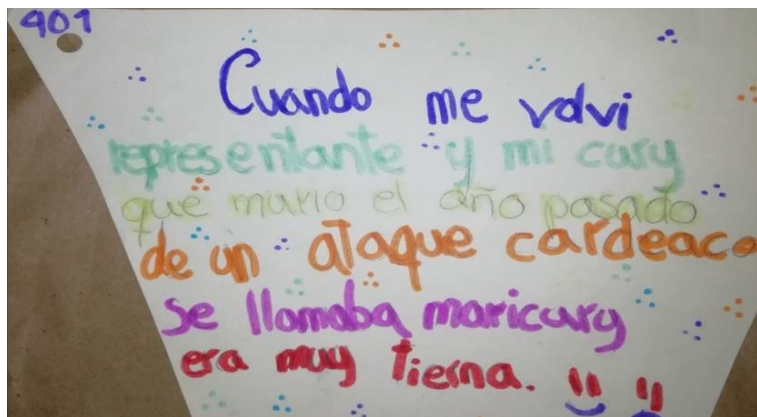 401
Cuando me volvi
representante y mi cury
que murio el año pasado
de un ataque cardeaco
se llamaba maricury
era muy tierna.